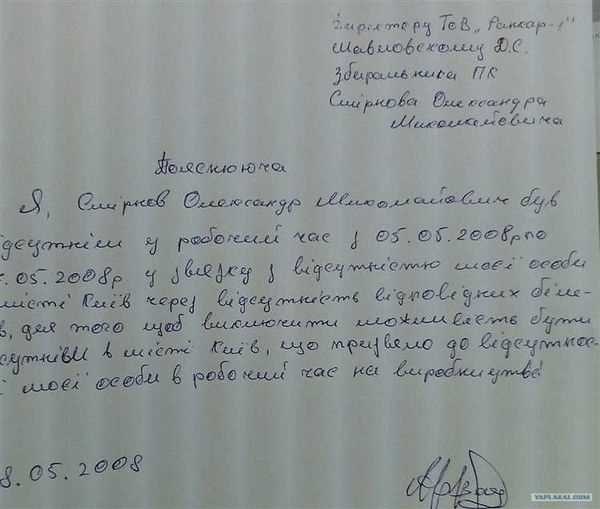 Директору ТоВ „Ранкар-1"
Шавловскому Д.С.
Збиральника ПК
Смірнова Олександра
Миколайовича
Пояснююча
Я, Смірнов Олександр Миколайович був
ідсутнім у робочий час з 05.05.2008р по
.05.2008р. у звязку з відсутністю моєї особи
місті Київ через відсутність відповідних біле-
в, для того щоб виключити можливість бути
сутнім в місті Київ, що призвело до відсутнос-
і моєї особи в робочий час на виробництві
8.05.2008
YAPLAKAL.COM